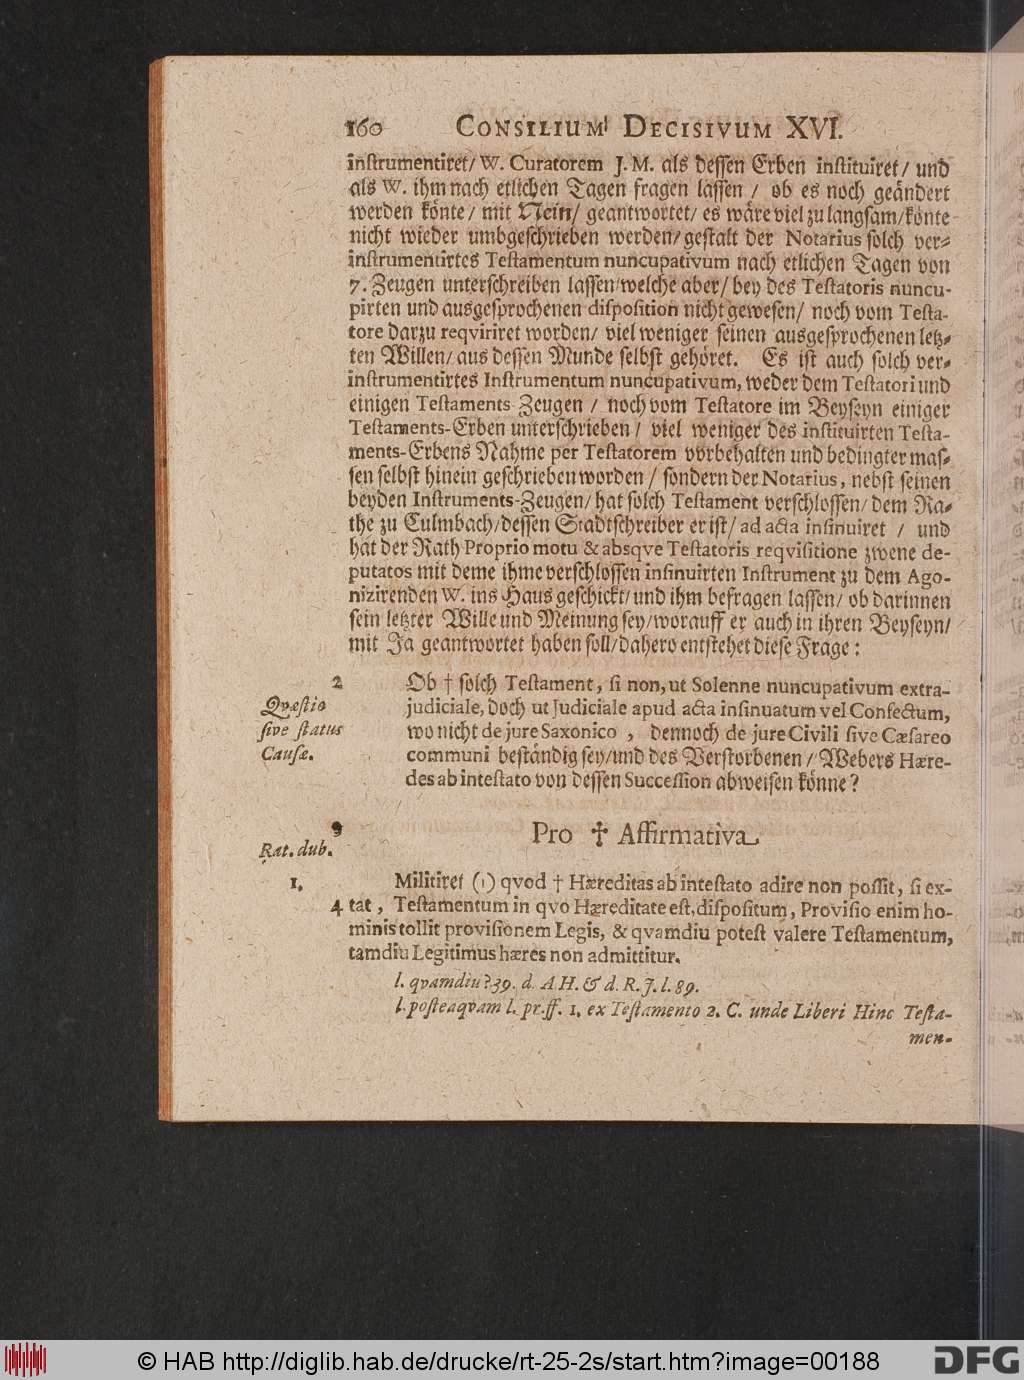 160 CONSILIUM DECISIVUM XVI.
instrumentiret/ W. Curatorem J. M. als dessen Erben instituiret/ und
als W. ihm nach etlichen Tagen fragen lassen / ob es noch geändert
werden könte/ mit Nein/ geantwortet/ es wäre viel zu langsam/könte
nicht wieder umbgeschrieben werden/ gestalt der Notarius solch ver-
instrumentirtes Testamentum nuncupativum nach etlichen Tagen von
7. Zeugen unterschreiben lassen/welche aber/ bey des Testatoris nuncu-
pirten und ausgesprochenen disposition nicht gewesen/ noch vom Testa-
tore darzu reqviriret worden/ viel weniger seinen ausgesprochenen letz-
ten Willen/ aus dessen Munde selbst gehöret. Es ist auch solch ver-
instrumentirtes Instrumentum nuncupativum, weder dem Testatori und
einigen Testaments-Zeugen / noch vom Testatore im Beyseyn einiger
Testaments-Erben unterschrieben/ viel weniger des instituirten Testa-
ments-Erbens Nahme per Testatorem vorbehalten und bedingter mas-
sen selbst hinein geschrieben worden / sondern der Notarius, nebst seinen
beyden Instruments-Zeugen/ hat solch Testament verschlossen/ dem Ra-
the zu Culmbach/dessen Stadtschreiber er ist/ ad acta insinuiret / und
hat der Rath Proprio motu & absqve Testatoris reqvisitione zwene de-
putatos mit deme ihme verschlossen insinuirten Instrument zu dem Ago-
nizirenden W. ins Haus geschickt/ und ihm befragen lassen/ ob darinnen
sein letzter Wille und Meinung sey/worauff er auch in ihren Beyseyn/
mit Ja geantwortet haben soll/dahero entstehet diese Frage:
2
Qvæstio
sive status
Causæ.
Ob † solch Testament, si non, ut Solenne nuncupativum extra-
judiciale, doch ut Judiciale apud acta insinuatum vel Confectum,
wo nicht de jure Saxonico , dennoch de jure Civili sive Cæsareo
communi beständig sey/und des Verstorbenen / Webers Hære-
des ab intestato von dessen Succession abweisen könne?
Rat. dub.
Pro ✝ Affirmativa
1.
Militiret (1) qvod † Hæreditas ab intestato adire non possit, si ex-
4 tat, Testamentum in qvo Hæreditate est, dispositum, Provisio enim ho-
minis tollit provisionem Legis, & qvamdiu potest valere Testamentum,
tamdiu Legitimus hæres non admittitur.
l. qvamdiu ? 39. d. A H. & d. R. J. l. 89.
l. posteaqvam l. pr. ff. 1. ex Testamento 2. C. unde Liberi Hinc Testa-
men-
© HAB http://diglib.hab.de/drucke/rt-25-2s/start.htm?image=00188
DFG
diglib